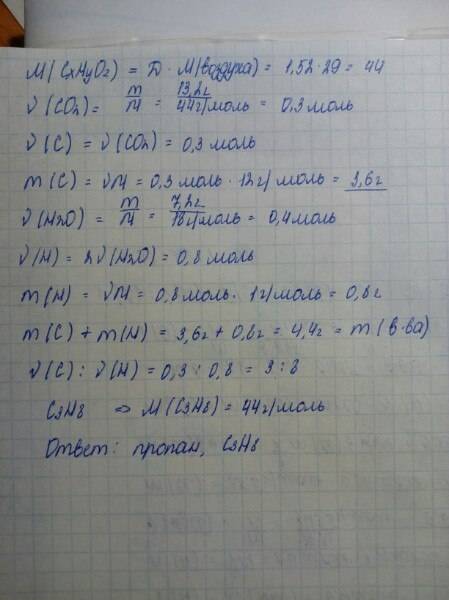 M(CxHyOz) = D · M(воздуха) = 1,52 · 29 = 44
ν(CO2) = m/M = 13,2г/44г/моль = 0,3 моль
ν(C) = ν(CO2) = 0,3 моль
m(C) = νM = 0,3 моль · 12г/моль = 3,6г
ν(H2O) = m/M = 7,2г/18г/моль = 0,4моль
ν(H) = 2ν(H2O) = 0,8 моль
m(H) = νM = 0,8моль · 1г/моль = 0,8г
m(C) + m(H) = 3,6г + 0,8г = 4,4г = m(в-ва)
ν(C) : ν(H) = 0,3 : 0,8 = 3 : 8
C3H8 => M(C3H8) = 44г/моль
Ответ: пропан, C3H8